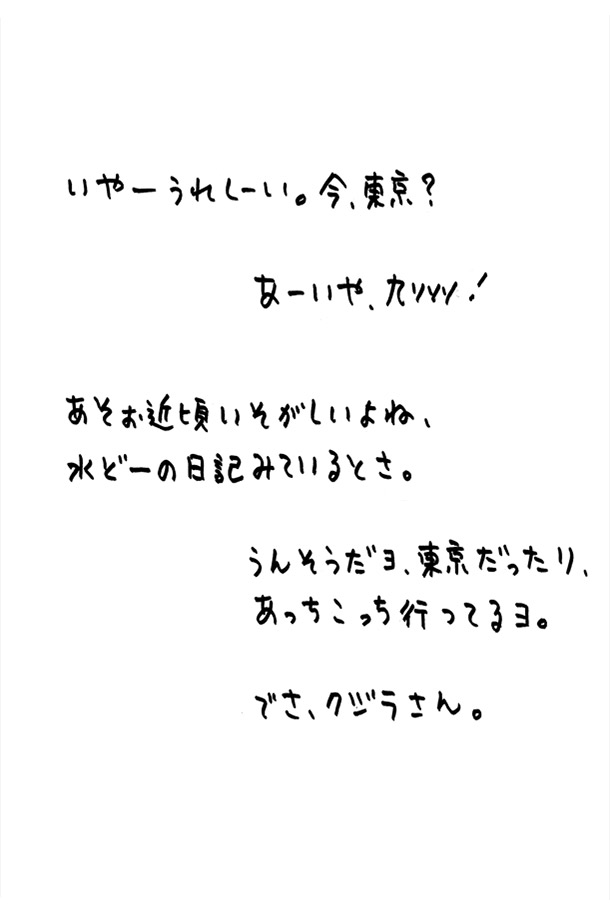 いやーうれしーい。今、東京?
あーいや、
あそお近頃いそがしいよね、
水どーの日記みているとさ。
うんそうだヨ、東京だったり、
あっちこっち行ってるヨ。
でさ、クジラさん。